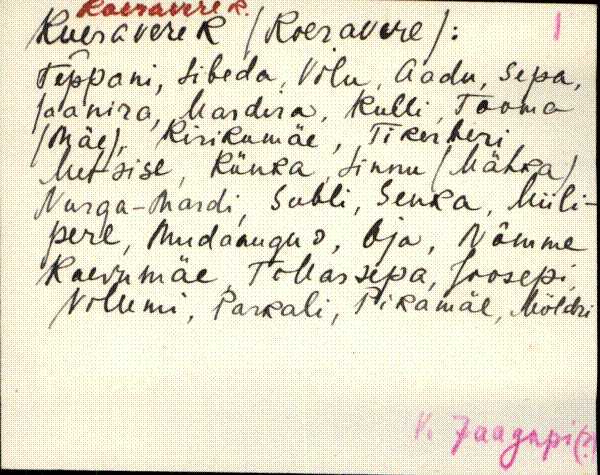 Koeravere k.
Koeravere k (Koeravere): 1
Teppani, Libeda, Völu, Aadu, Sepa,
Jaanira, Mardira, Kulli, Tooma
(Mäe), Kirikumäe, Tikerberi
Metsise, Künka, Linnu (Mähka)
Nurga-Mardi, Subli, Senka, Miili-
pere, Mudaaugu, Oja, Nõmme
Kaevumäe, Tollarsepa, Joosepi,
Vollemi, Parkali, Pikamäe, Möldri
V. Jaagupi (?)